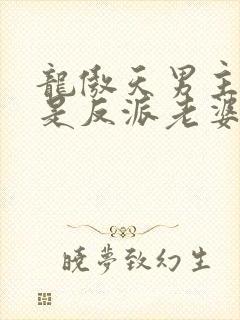 龍傲天男主
是反派老婆
曉夢致幻生